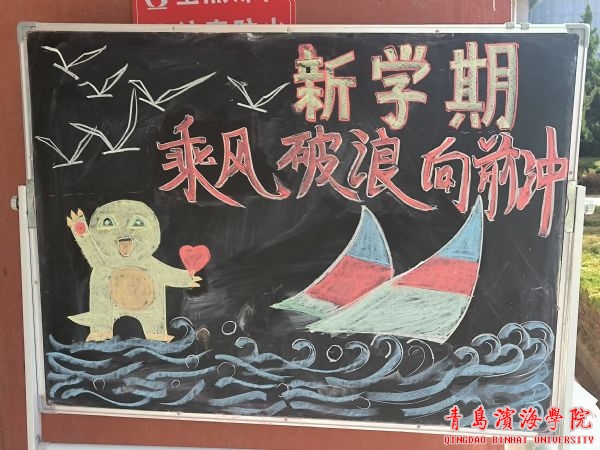 新学期
乘风破浪向前冲
青島濱海學院
QINGDAO BINHAI UNIVERSITY